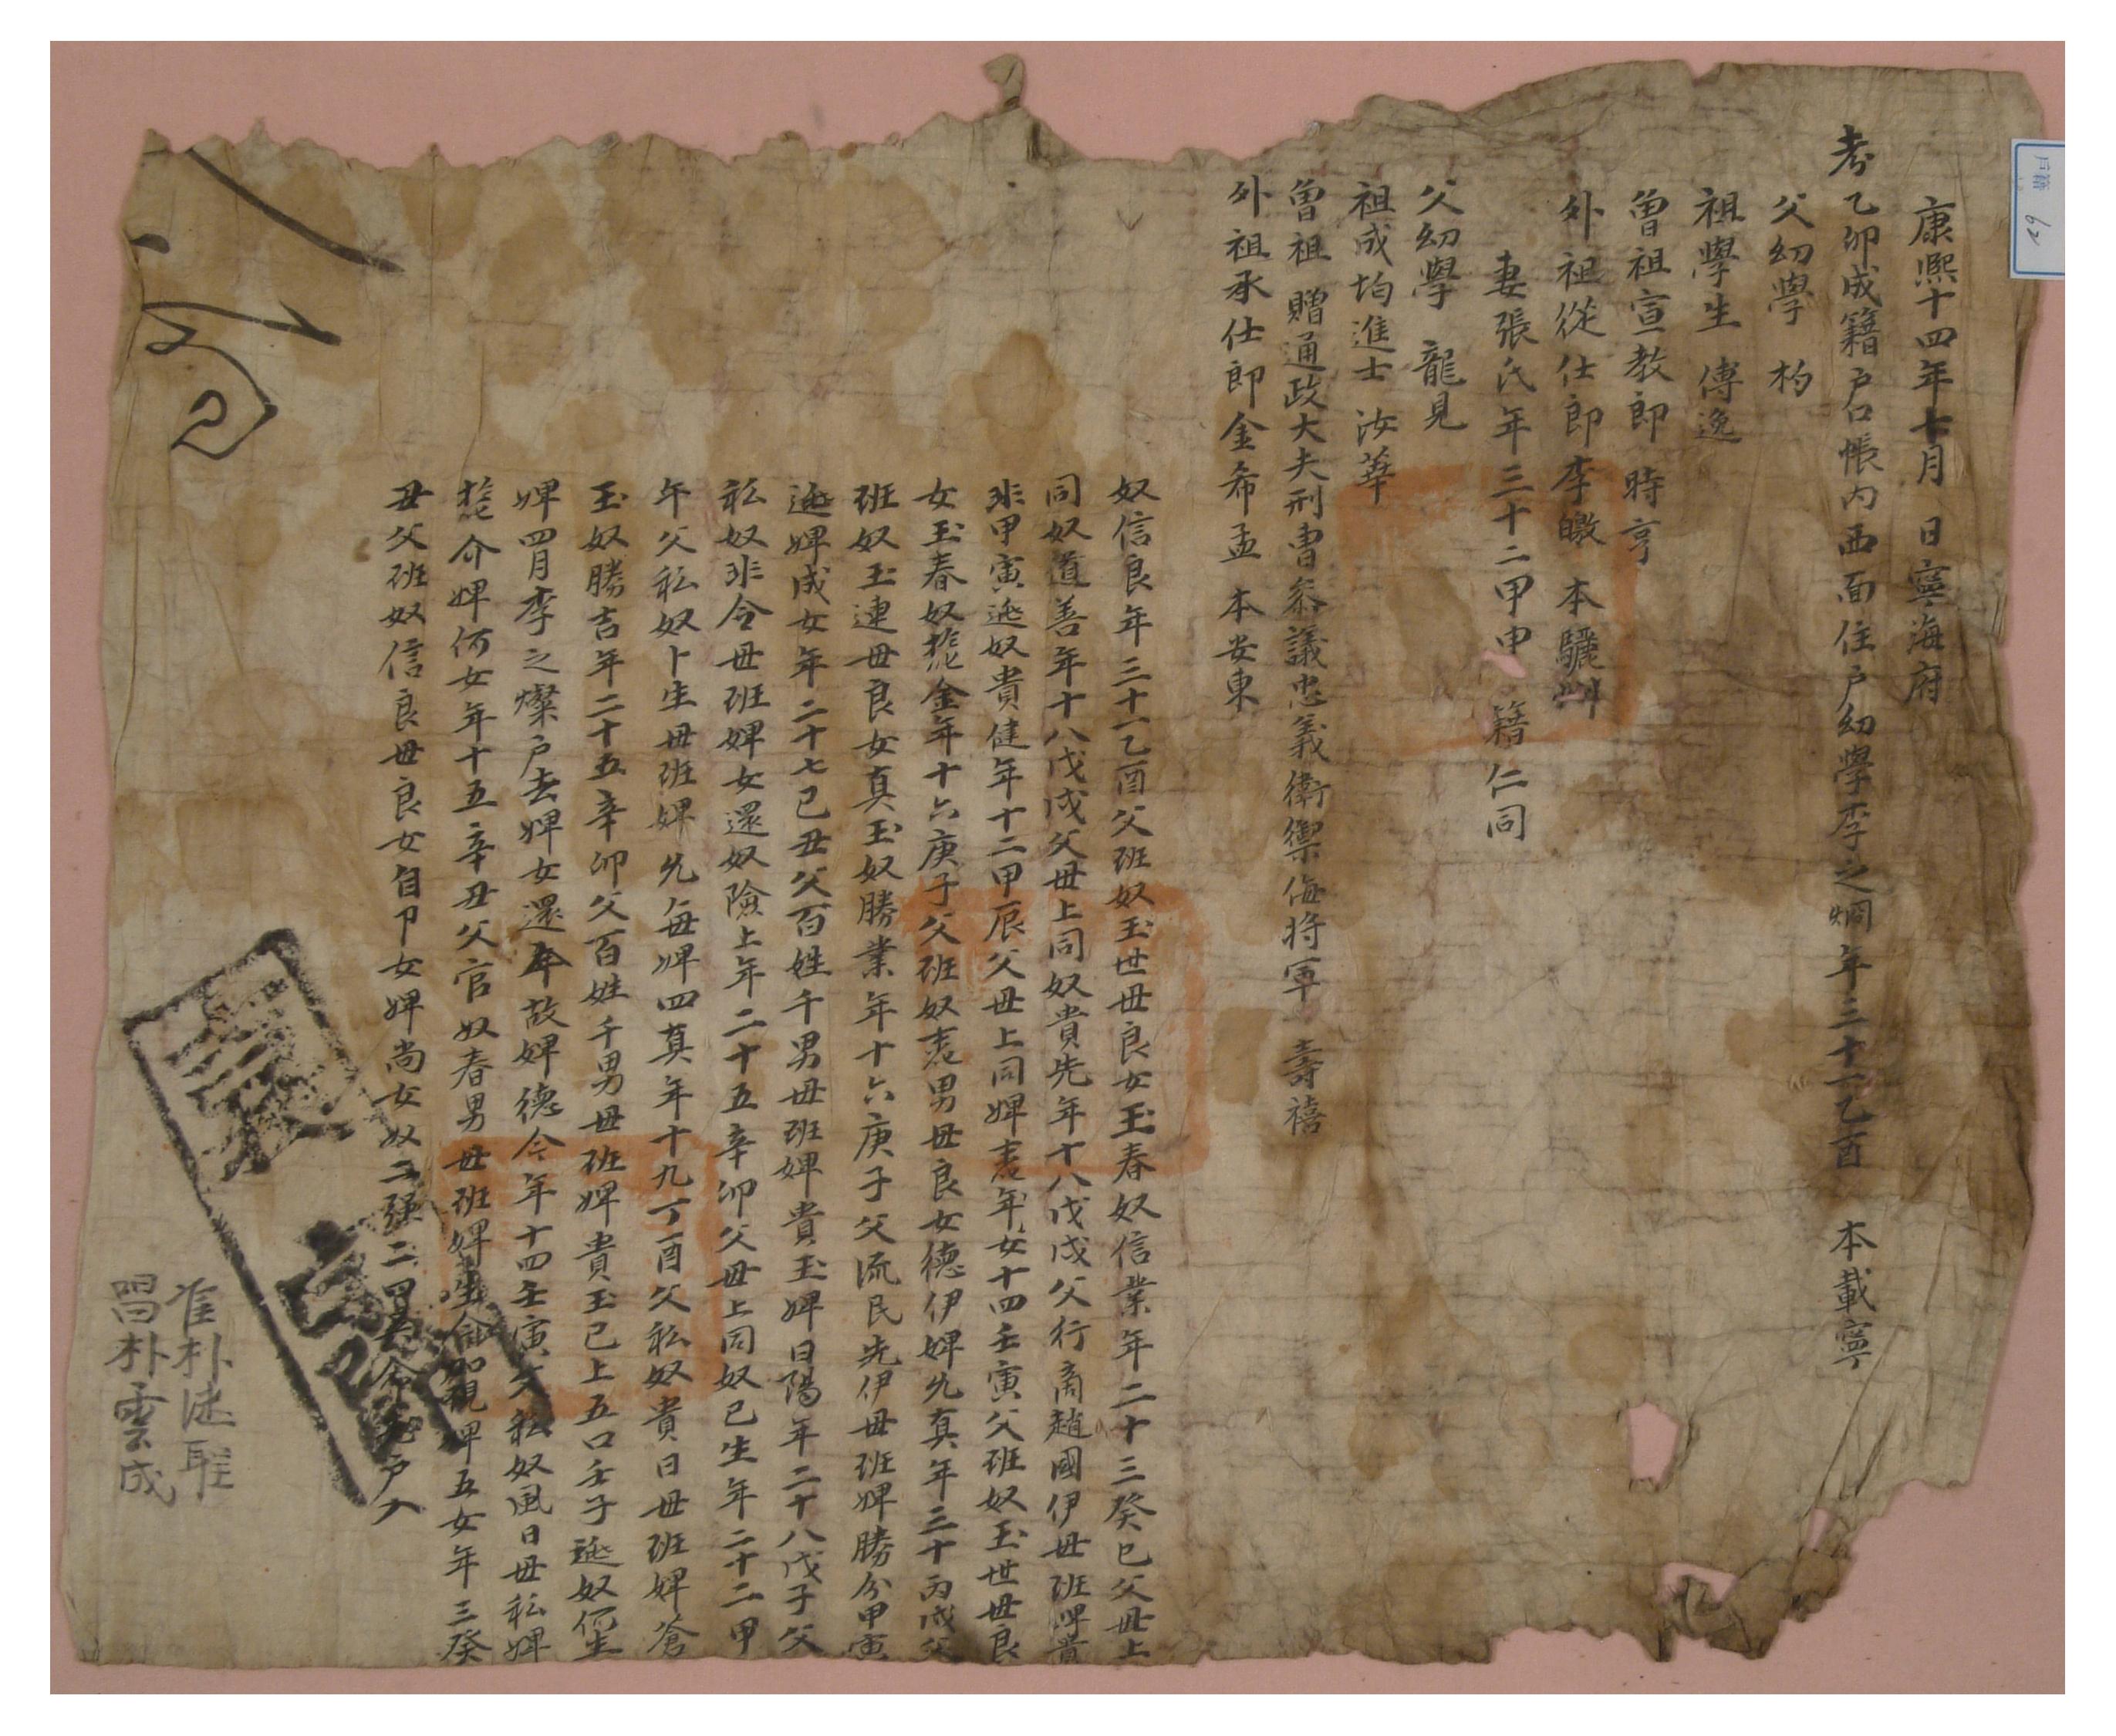 康熙十四年七月 日寧海府
考乙卯成籍户口帳內西面住户幼學李之炯年三十一乙酉 本載寧
父幼學 杓
祖學生 傅逸
曾祖宣教郎 時亨
外祖從仕郎李皦 本驪州
妻張氏年三十二甲申 籍仁同
父幼學 龍見
祖成均進士 汝華
曾祖 贈通政大夫刑曹參議忠義衛禦侮將軍 壽禧
外祖承仕郎金希孟 本安東
奴信良年三十一乙酉父班奴玉世毋良女玉春奴信業年二十三癸巳父毋上
同奴道善年十八戊戌父毋上同奴貴先年十八戊戌父行商趙國伊毋班婢貴
非甲寅逃奴貴健年十二甲辰父毋上同婢㐗年女十四壬寅父班奴玉世毋良
女玉春奴㐗金年十六庚子父班奴㐗男毋良女德伊婢先真年三十丙戌父
班奴玉連毋良女真玉奴勝業年十六庚子父流民先伊毋班婢勝分甲寅
逃婢成女年二十七己丑父百姓千男毋班婢貴玉婢日陽年二十八戊子父
私奴非令毋班婢女還奴險上年二十五辛卯父毋上同奴己生年二十二甲
午父私奴卜生毋班婢先每婢四真年十九丁酉父私奴貴日毋班婢蒼
玉奴勝吉年二十五辛卯父百姓千男毋班婢貴玉已上五口壬子逃奴㐚生
婢四月李之燦户去婢女還年故婢德今年十四壬寅父私奴風日毋私婢
㐗介婢何女年十五辛丑父官奴春男毋班婢生命加現婢五女年三癸
丑父班奴信良毋良女自卩女婢尚女奴二强二口李命 户入
准朴 聀
唱朴雲成
户籍